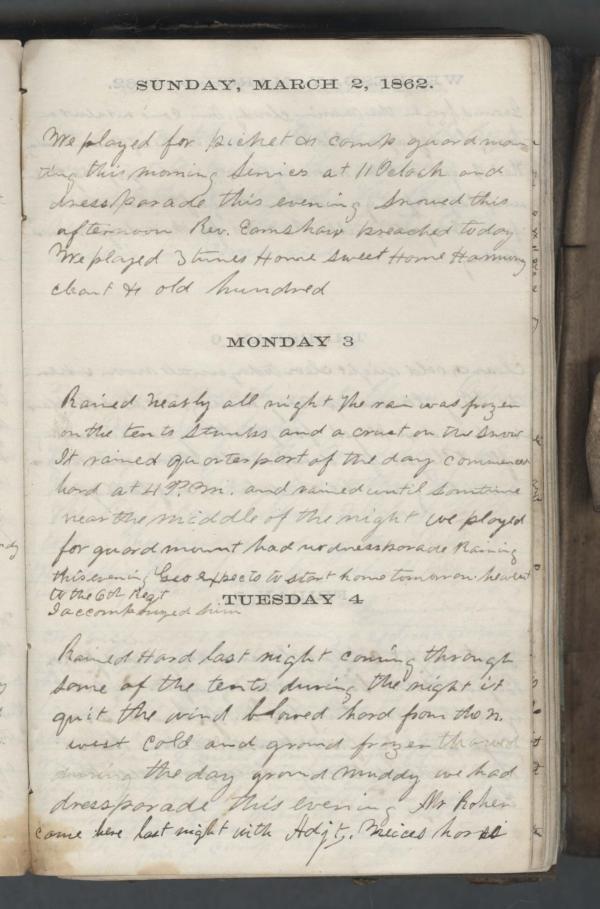 SUNDAY, MARCH 2, 1862.
We played for picket & camp guard moun
ting this morning Servies at 11 Oclock and
dressparade this evening Snowed this
afternoon Rev. Earnshaw preached today
We played 3 tunes Home Sweet Home Harmony
chant & old hundred
MONDAY 3
Rained nearly all night the rain was frozen
on the tents Stumps and a crust on the snow
It rained quarter part of the day commenced
hard at 4 P.M. and rained until Somtime
near the middle of the night we played
for guard mount had no dressparade Raining
this evening Geo expects to start home tomorrow he went
to the 6th Regt
I accompanyed him
TUESDAY 4
Rained Hard last night coming through
some of the tents during the night it
quit the wind blowed hard from the n.
west cold and ground frozen thawed
during the day ground muddy we had
dressparade this evening Mr
came here last night with Adjt. horse